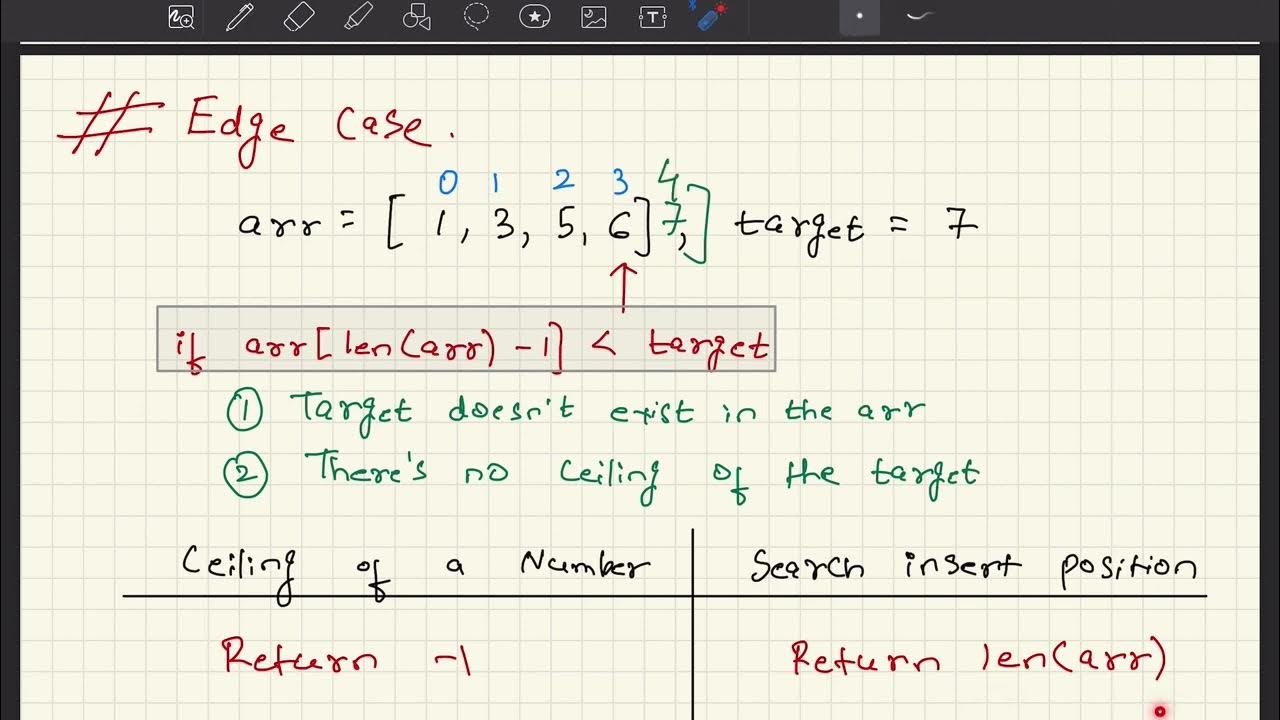 # Edge Case.
0 1 2 3 4
arr = [ 1, 3, 5, 6] 7,] target = 7
if arr[len(arr) -1] < target
① Target doesn't exist in the arr
② There's no Ceiling of the target
Ceiling of a Number
Search insert position
Return -1
Return len(arr)